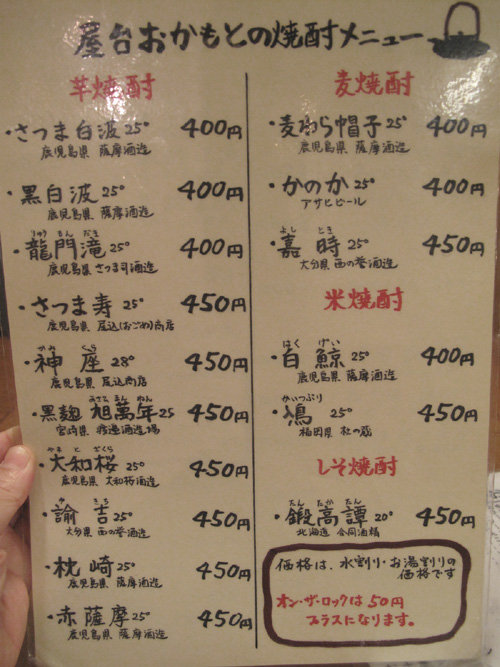 屋台おかもとの焼酎メニュー
芋焼酎
・さつま白波25° 400円
鹿児島県 薩摩酒造
・黒白波25° 400円
鹿児島県 薩摩酒造
りゅう もん だき
・龍門滝25° 400円
鹿児島県 さつま司酒造
・さつま寿25° 450円
鹿児島県 尾込(おごめ)商店
かみ くら
・神座28° 450円
鹿児島県 尾込商店
・黒麹 旭萬年25 450円
宮崎県 渡邊酒造場
やま と ざくら
・大和桜25° 450円
鹿児島県 大和桜酒造
ゆ きち
・諭吉25° 450円
大分県 西の誉酒造
・枕崎25° 450円
鹿児島県 薩摩酒造
・赤薩摩25° 450円
鹿児島県 薩摩酒造
麦焼酎
・麦わら帽子25° 400円
鹿児島県 薩摩酒造
・かのか25° 400円
アサヒビール
よし とき
・嘉時25° 450円
大分県 西の誉酒造
米焼酎
はく げい
・白鯨25° 400円
鹿児島県 薩摩酒造
かいつぶり
25° 450円
福岡県 杜の蔵
しそ焼酎
たん たか たん
・鍛高譚20° 450円
北海道 合同酒精
価格は、水割り・お湯割りの
価格です
オン・ザ・ロックは50円
プラスになります。